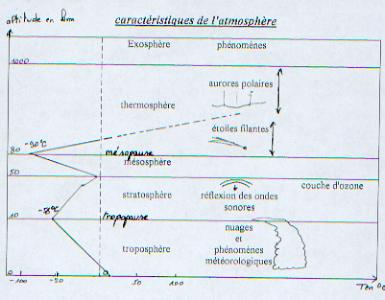 altitude en km
caractéristiques de l'atmosphère
Exosphère phénomènes
1000
aurores polaires
thermosphère
étoiles filantes
-90°C
80 mésopause
mésosphère
50
couche d'ozone
stratosphère réflexion des ondes
sonores
10 tropopause
nuages
et
troposphère phénomènes
météorologiques
0
-100 -50 50 100 T en °C